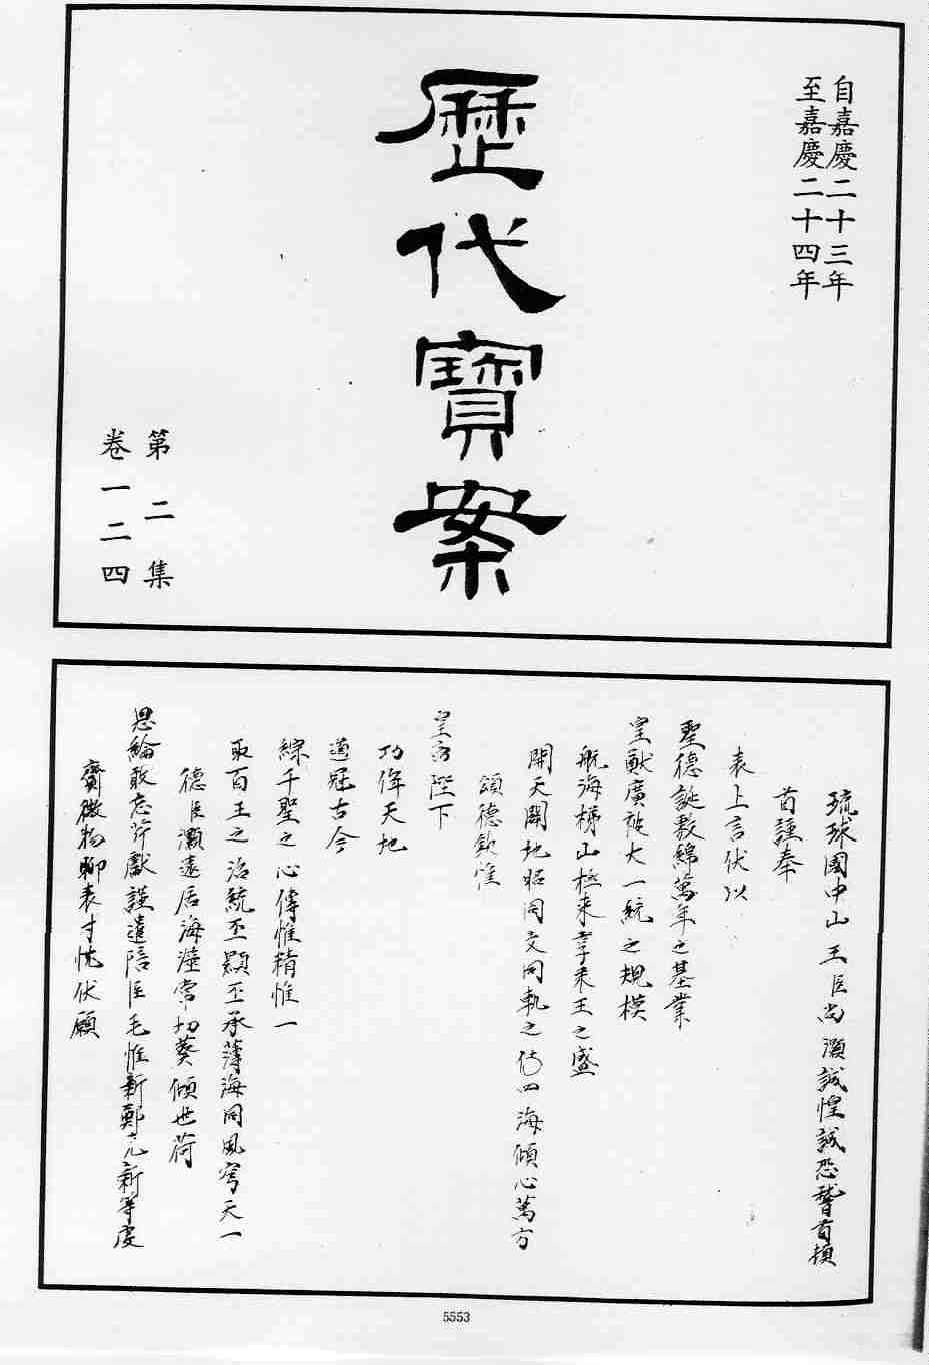 自嘉慶二十三年
至嘉慶二十四年
歷代寶案
第二集
卷一二四
琉球國中山王臣尚灝誠惶誠恐稽首頓
首謹奉
表上言伏以
聖德誕敷綿萬年之基業
皇猷廣被大一統之規模
航海梯山極來享來王之盛
開天闢地昭同文同軌之傳四海傾心萬方
頌德欽惟
皇帝陛下
功侔天地
道冠古今
綜千聖之心傳惟精惟一
承百王之治統丕顯丕承薄海同風穹天一
德臣灝遠居海澨常切葵傾世荷
恩綸敢忘芹獻謹遣陪臣毛惟新鄭元新等虔
賫微物聊表寸忱伏願
5553